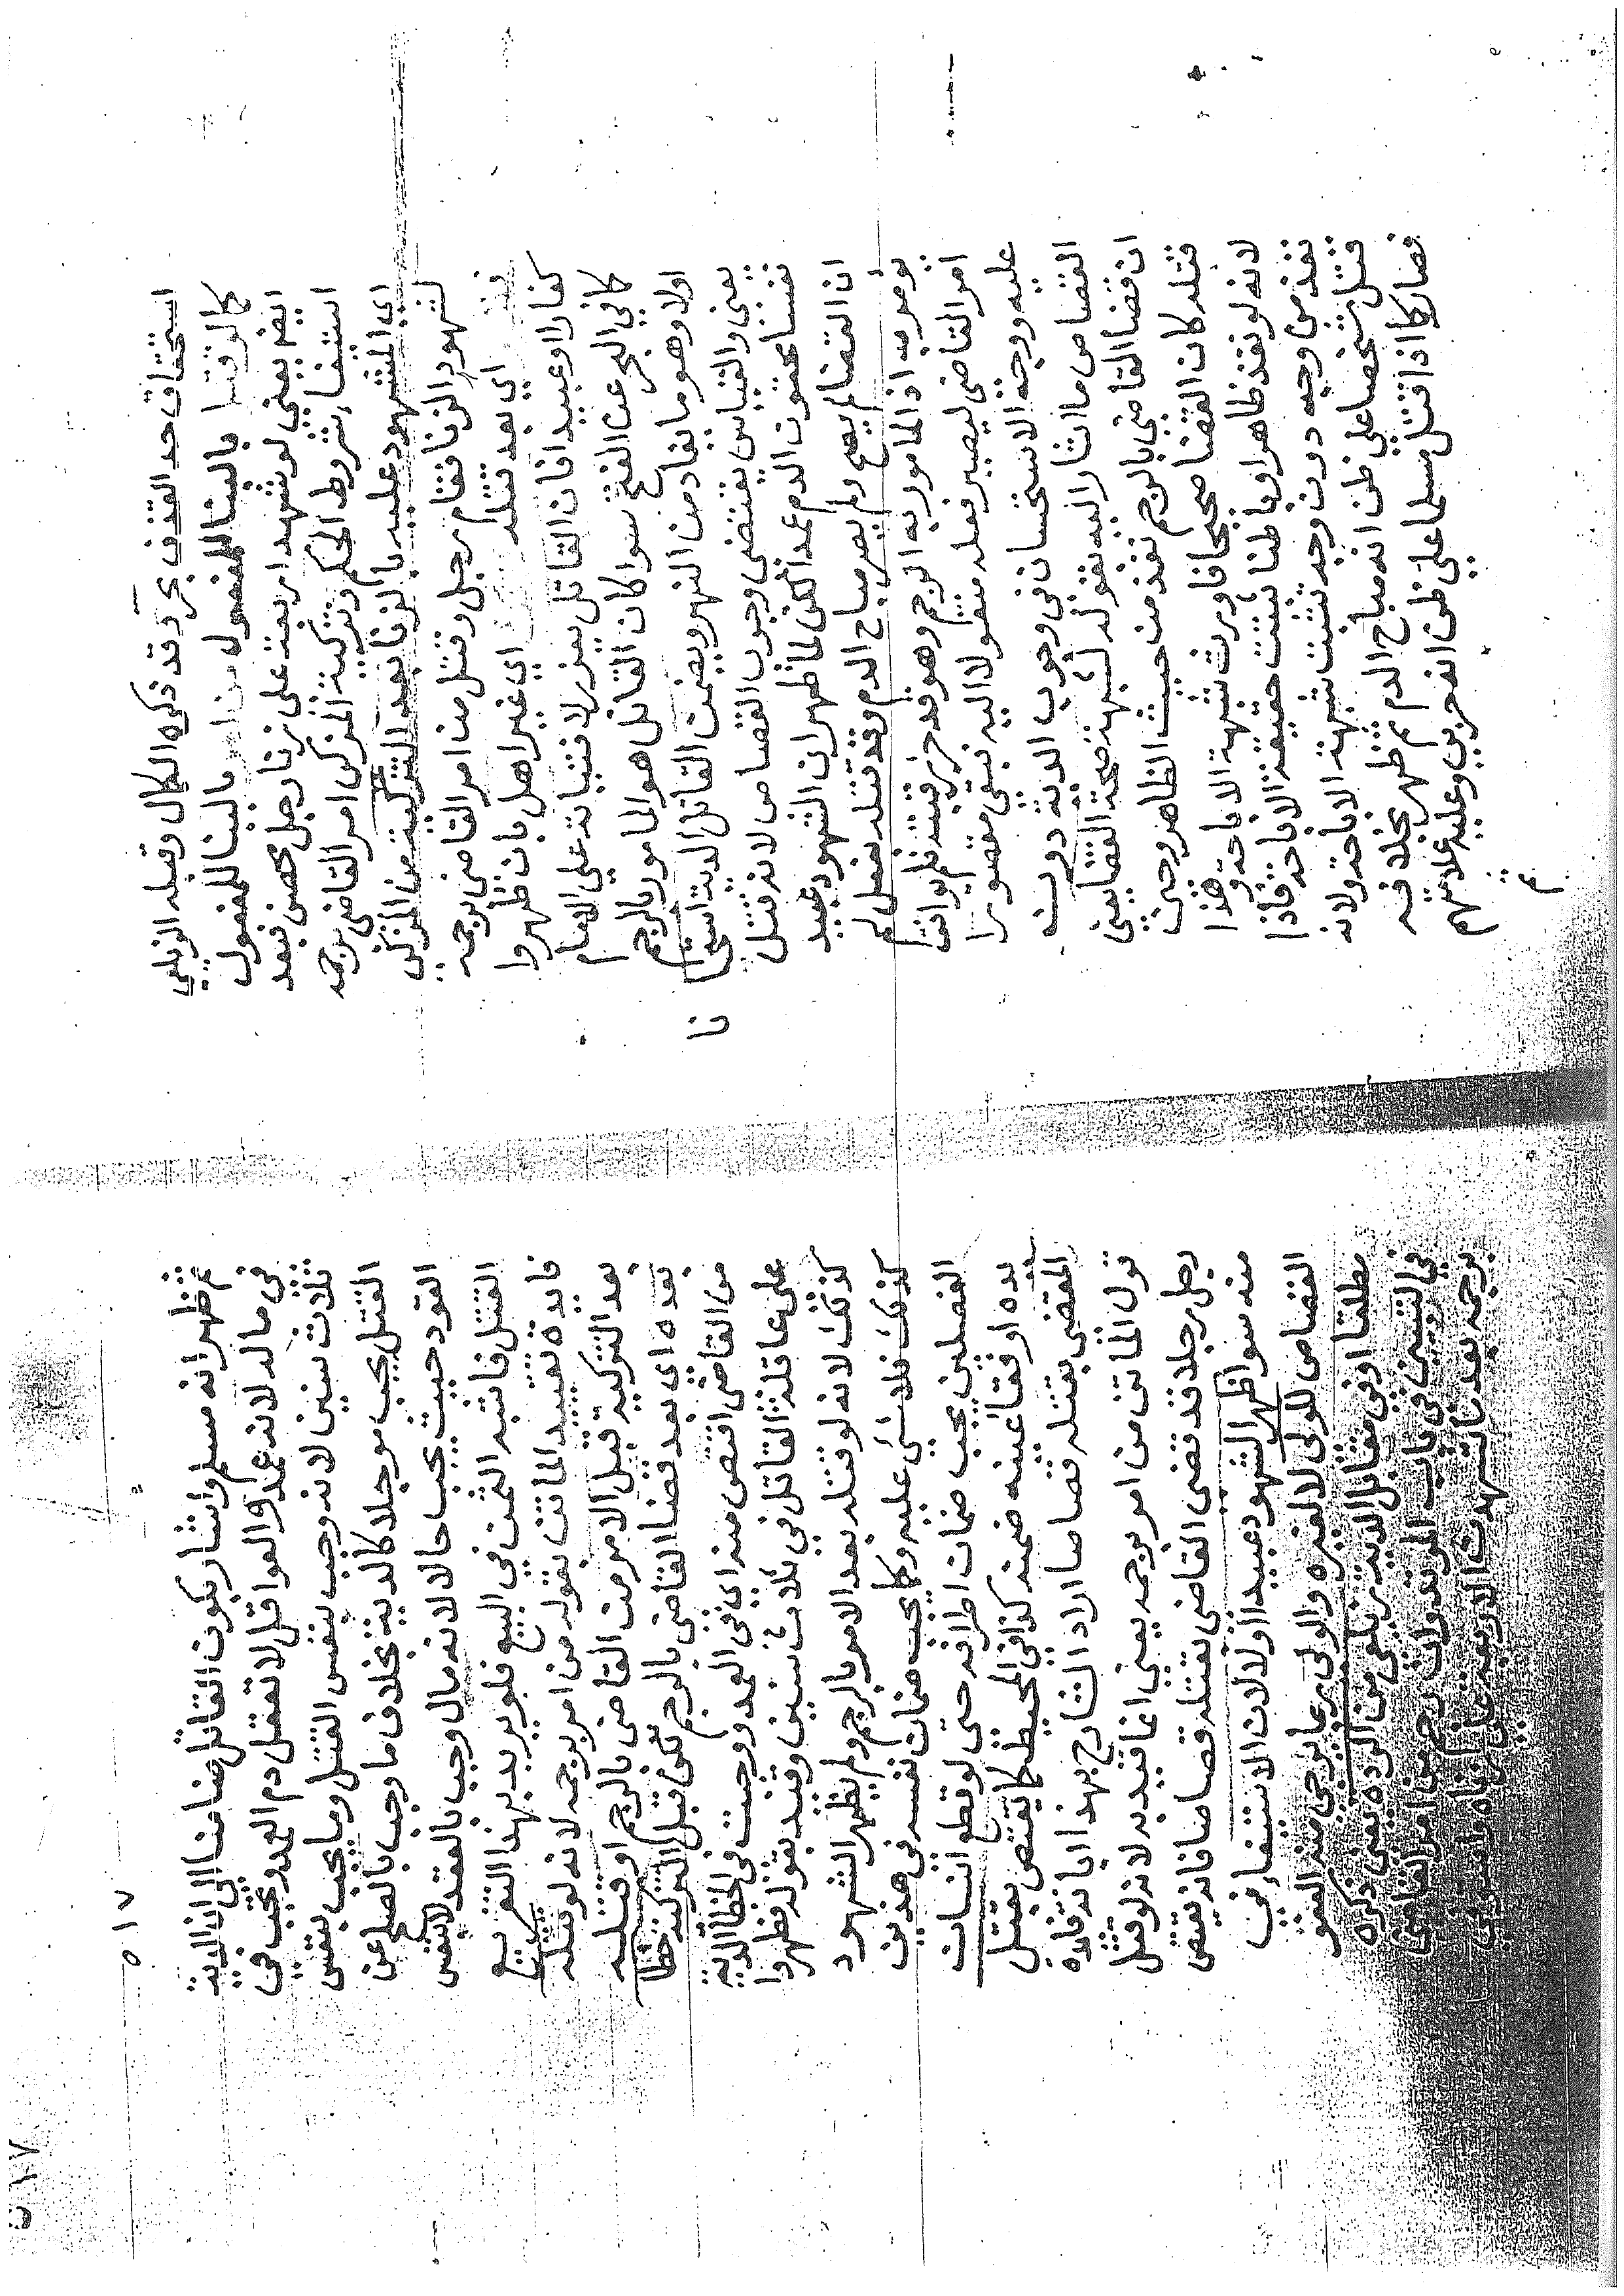 استحقاق حد القذف بحر وقد ذكره الكمال وقبله الزيلعي
كما لو قتل بالبنا للمفعول من امر بالبنا للمفعول
ايضا يعني لو شهد اربعة على زنا رجل محصن فبعد
استيفاء شروط الحكم وتزكية المزكى امر القاضي برجمه
اي المشهود عليه بالزنا بعد التزكية من المزكى
لشهود الزنا فقام رجل وقتل من امر القاضي برجمه
اي بعد قتله اي غير اهل بان ظهروا
كفارا او عبيدا فان القاتل يعزر لافتياته على الامام
كما في البحر عن الفتح سوا كان القاتل هو المامور بالرجم
اولا وهو ما يفاد من النهر ويضمن القاتل الدية استحسا
نا
يعني والقياس يقتضي وجوب القصاص لانه قتل
نفسا محقون الدم عمدا لكن لما ظهر ان الشهود عبيد
ان القضا لم يصح ولم يصر مباح الدم وقد قتله بفعل لم
يومر به اذ المامور به الرجم وهو قد حز رقبته فلم يوافق
امر القاضي ليصير فعله منقولا اليه فبقى مقصورا
عليه ووجه الاستحسان في وجوب الدية دون
القصاص ما اشار اليه بقوله لشبهة صحة القضا يعني
ان قضا القاضي بالرجم نفذ من حيث الظاهر وحين
قتله كان القضا صحيحا فاورث شبهة الاباحة وهذا
لانه لو نفذ ظاهرا وباطنا يثبت حقيقة الاباحة فاذا
نفذ من وجه دون وجه تثبت شبهة الاباحة ولانه
قتل شخصا على ظن انه مباح الدم ثم ظهر بخلافه
فصار كما اذا قتل مسلما على ظن انه حربى وعليه علامتهم
ثم
٥١٧
ثم ظهر انه مسلم واشار بكون القاتل ضامنا الى ان الدية
في ماله لانه عمد والعواقل لا تعقل دم العمد وتجب في
ثلاث سنين لانه وجب بنفس القتل وما يجب بنفس
القتل يجب موجلا كالدية بخلاف ما وجب بالصلح عن
القود حيث يجب حالا لانه مال وجب بالعقد لا بنفس
القتل فاشبه الثمن في البيع فلو يريد بهذا التفريع
فايدة تقييد الماتن بقوله من امر برجمه لانه لو قتله
بعد التزكية قبل الامر من القاضي بالرجم او قتله
بعده اي بعد قضا القاضي بالرجم لكن قبل التزكية خطا
من القاضي اقتص منه اي في العمد ووجبت في الخطا الدية
على عاقلة القاتل في ثلاث سنين وقيد بقوله فظهروا
كذلك لانه لو قتله بعد الامر بالرجم ولم يظهر الشهود
كذلك فلا شى عليه وكما يجب ضمان نفسه في هذين
الفصلين يجب ضمان اطرافه حتى لو قطع انسان
يده او فقا عينه ضمنه كذا في المحيط كما يقتص بقتل
المقضى بقتله قصاصا اراد الشارح بهذا ابانة فائدة
قول الماتن من امر برجمه يعني انما قيد به لانه لو قتل
رجل رجلا قد قضى القاضي بقتله قصاصا فانه يقتص
منه سوا ظهر الشهود عبيدا او لا لان الاستيفاء في
القصاص للولى لا لغيره والولى ربما يرجى منه العفو
مطلقا او في مقابل الدية زيلعي من الردة يعني ذكره
في التبيين في باب المرتد وان رجم من امر القاضي
برجمه بعدما شهدت الاربعة على زناه واستوفى